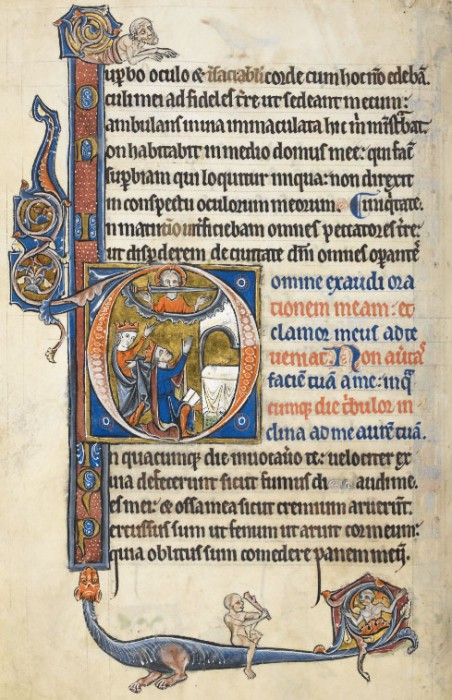 Supbo oculo & isaciabili corde cum hoc nō edebā.
Oculi mei ad fideles t̄re ut sedeant mecum:
ambulans in uia immaculata hic m̄ mīstbat.
Non habitabit in medio domus mee: qui facit
supbiam qui loquitur iniqua: non direxit
in conspectu oculorum meorum. iniqͥtate.
In matutino int̄ficiebam omnes peccatores t̄re:
ut disperderem de ciuitate dn̄i omnes opantes
Domine exaudi ora
tionem meam: et
clamor meus ad te
ueniat. Non auertas
faciē tuā a me: in qͣ
cumque die tbulor in
clina ad me aurem tuā.
In quacumque die inuocauero te: uelociter ex
Quia defecerunt sicut fumus di audi me.
es mei: & ossa mea sicut cremium aruerunt.
Percussus sum ut fenum et aruit cor meum:
quia oblitus sum comedere panem meū.